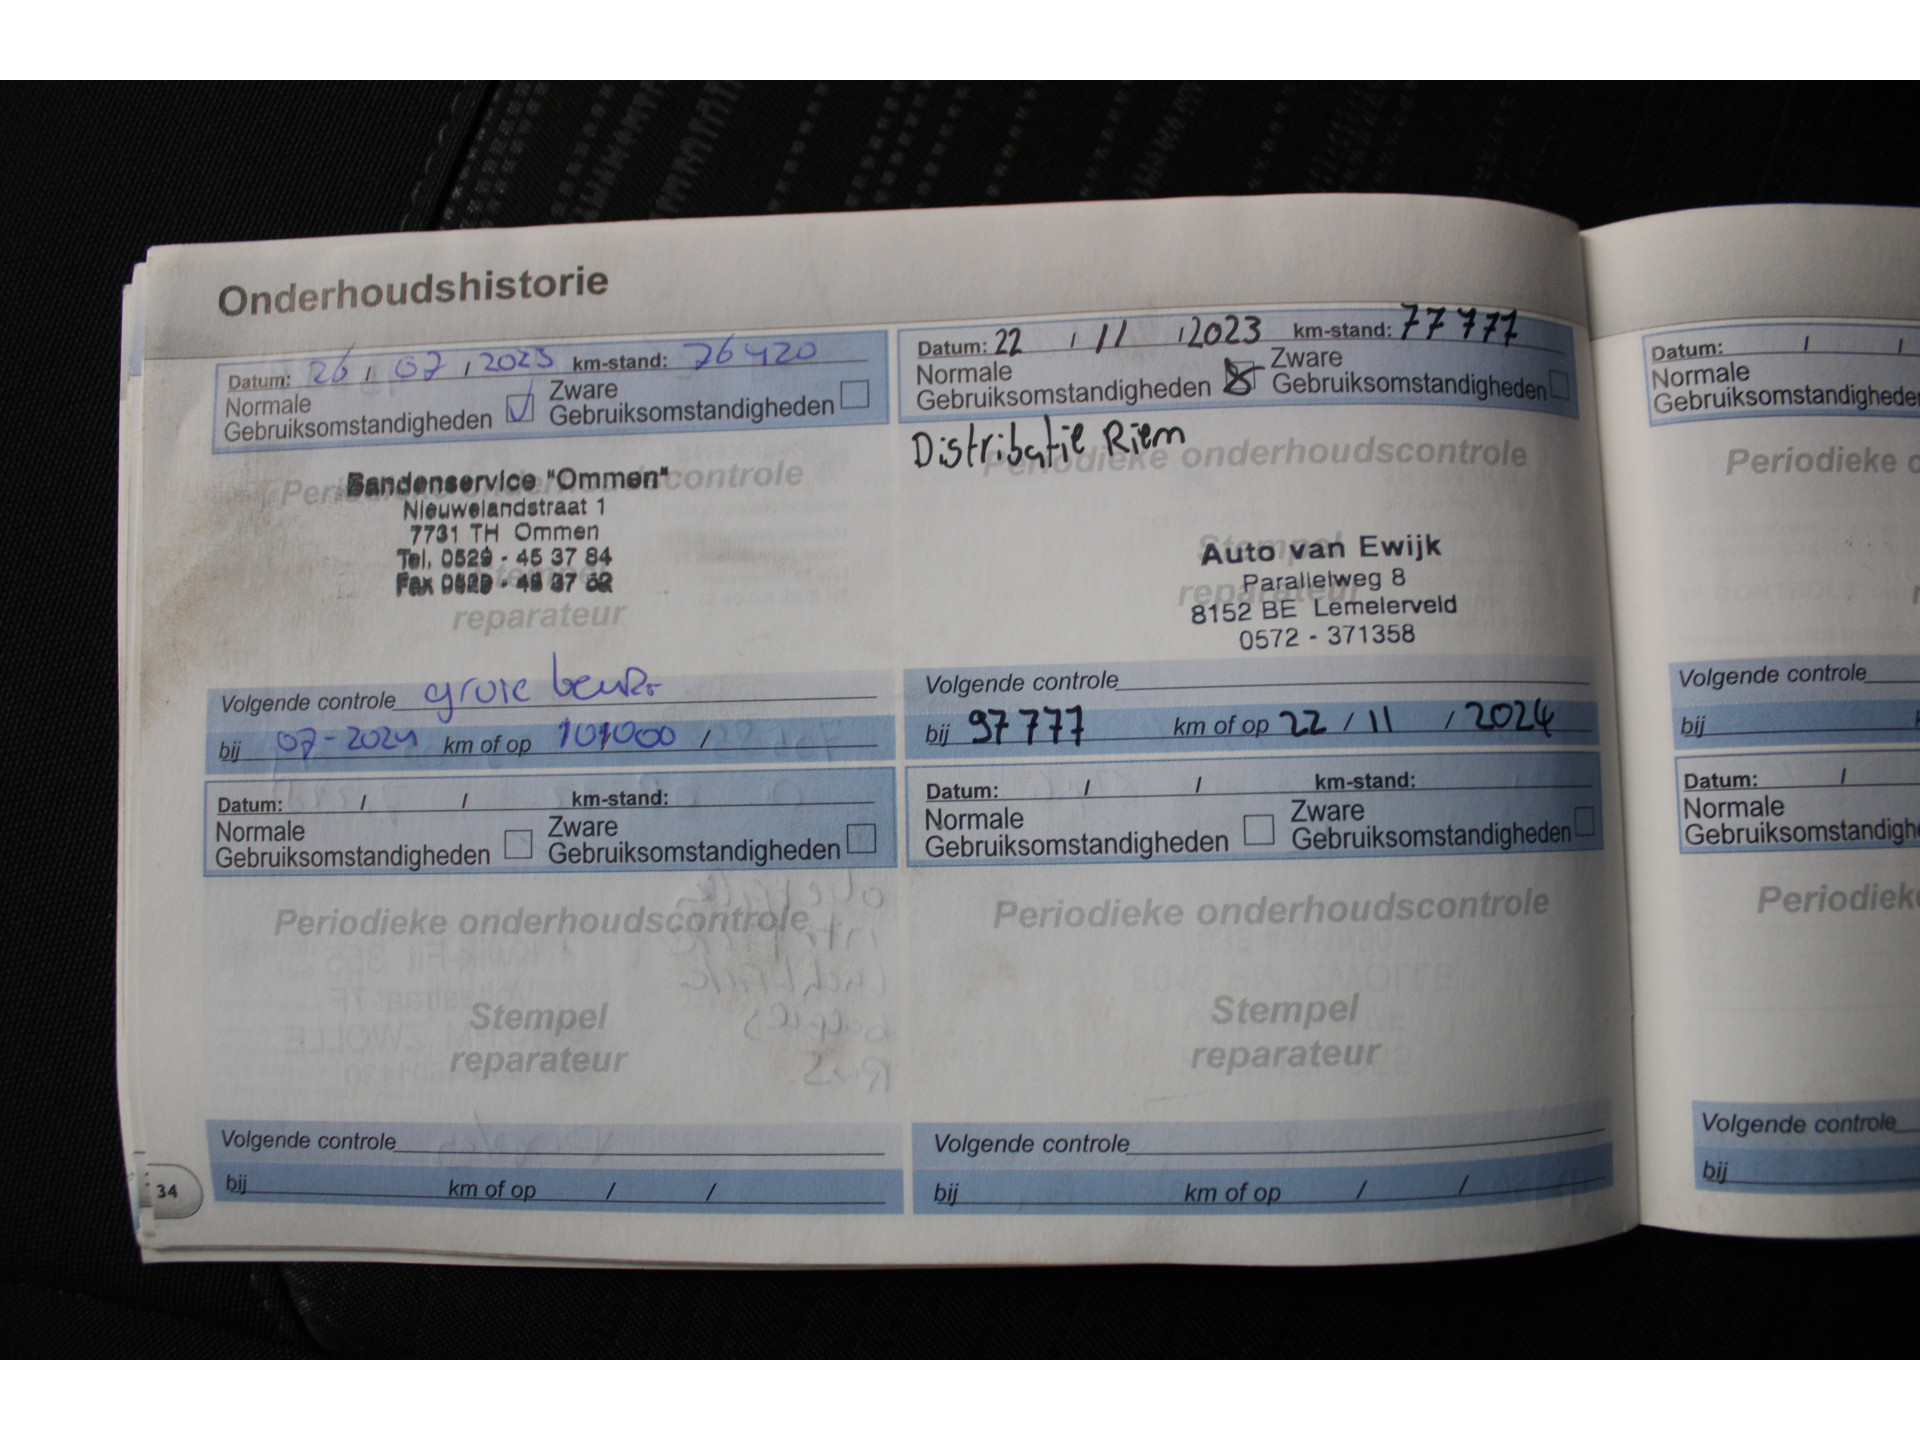 Onderhoudshistorie
Datum: 26 / 07 / 2023 km-stand: 76420
Normale
Gebruiksomstandigheden
Zware
Gebruiksomstandigheden
Periodieke onderhoudscontrole
Bandenservice "Ommen"
Nieuwelandstraat 1
7731 TH Ommen
Tel. 0529 - 45 37 84
Fax 0529 -
reparateur
Volgende controle grote beurt
bij 07-2024 km of op 101000 /
Datum: 22 / 11 / 2023 km-stand: 77777
Normale
Gebruiksomstandigheden
Zware
Gebruiksomstandigheden
Distributie Riem
Periodieke onderhoudscontrole
Stempel
reparateur
Auto van Ewijk
Parallelweg 8
8152 BE Lemelerveld
0572 - 371358
Volgende controle
bij 97777 km of op 22 / 11 / 2024
Datum: / / km-stand:
Normale
Gebruiksomstandigheden
Zware
Gebruiksomstandigheden
Periodieke onderhoudscontrole
Stempel
reparateur
Volgende controle
bij km of op / /
Datum: / / km-stand:
Normale
Gebruiksomstandigheden
Zware
Gebruiksomstandigheden
Periodieke onderhoudscontrole
Stempel
reparateur
Volgende controle
bij km of op / /
34
Datum: / /
Normale
Gebruiksomstandighede
Periodieke
Volgende controle
bij
Datum: /
Normale
Gebruiksomstandigh
Periodiek
Volgende controle
bij